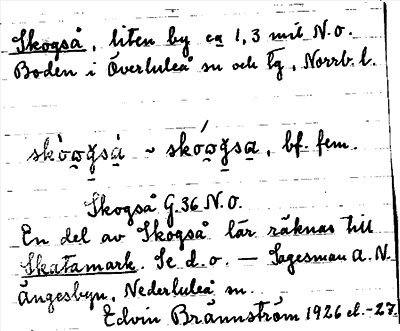 Skogså, liten by ca 1,3 mil N.O.
Boden i Överluleå sn och tg, Norrb. l.
skò̱o̱g̱sà̱ ~ skó̱o̱g̱sa̱, bf. fem.
Skogså G.36 N.O.
En del av Skogså lär räknas till
Skatamark. Se d.o. — Sagesman a. N.
ängesbyn, Nederluleå sn.
Edvin Brännström 1926 el. -27.